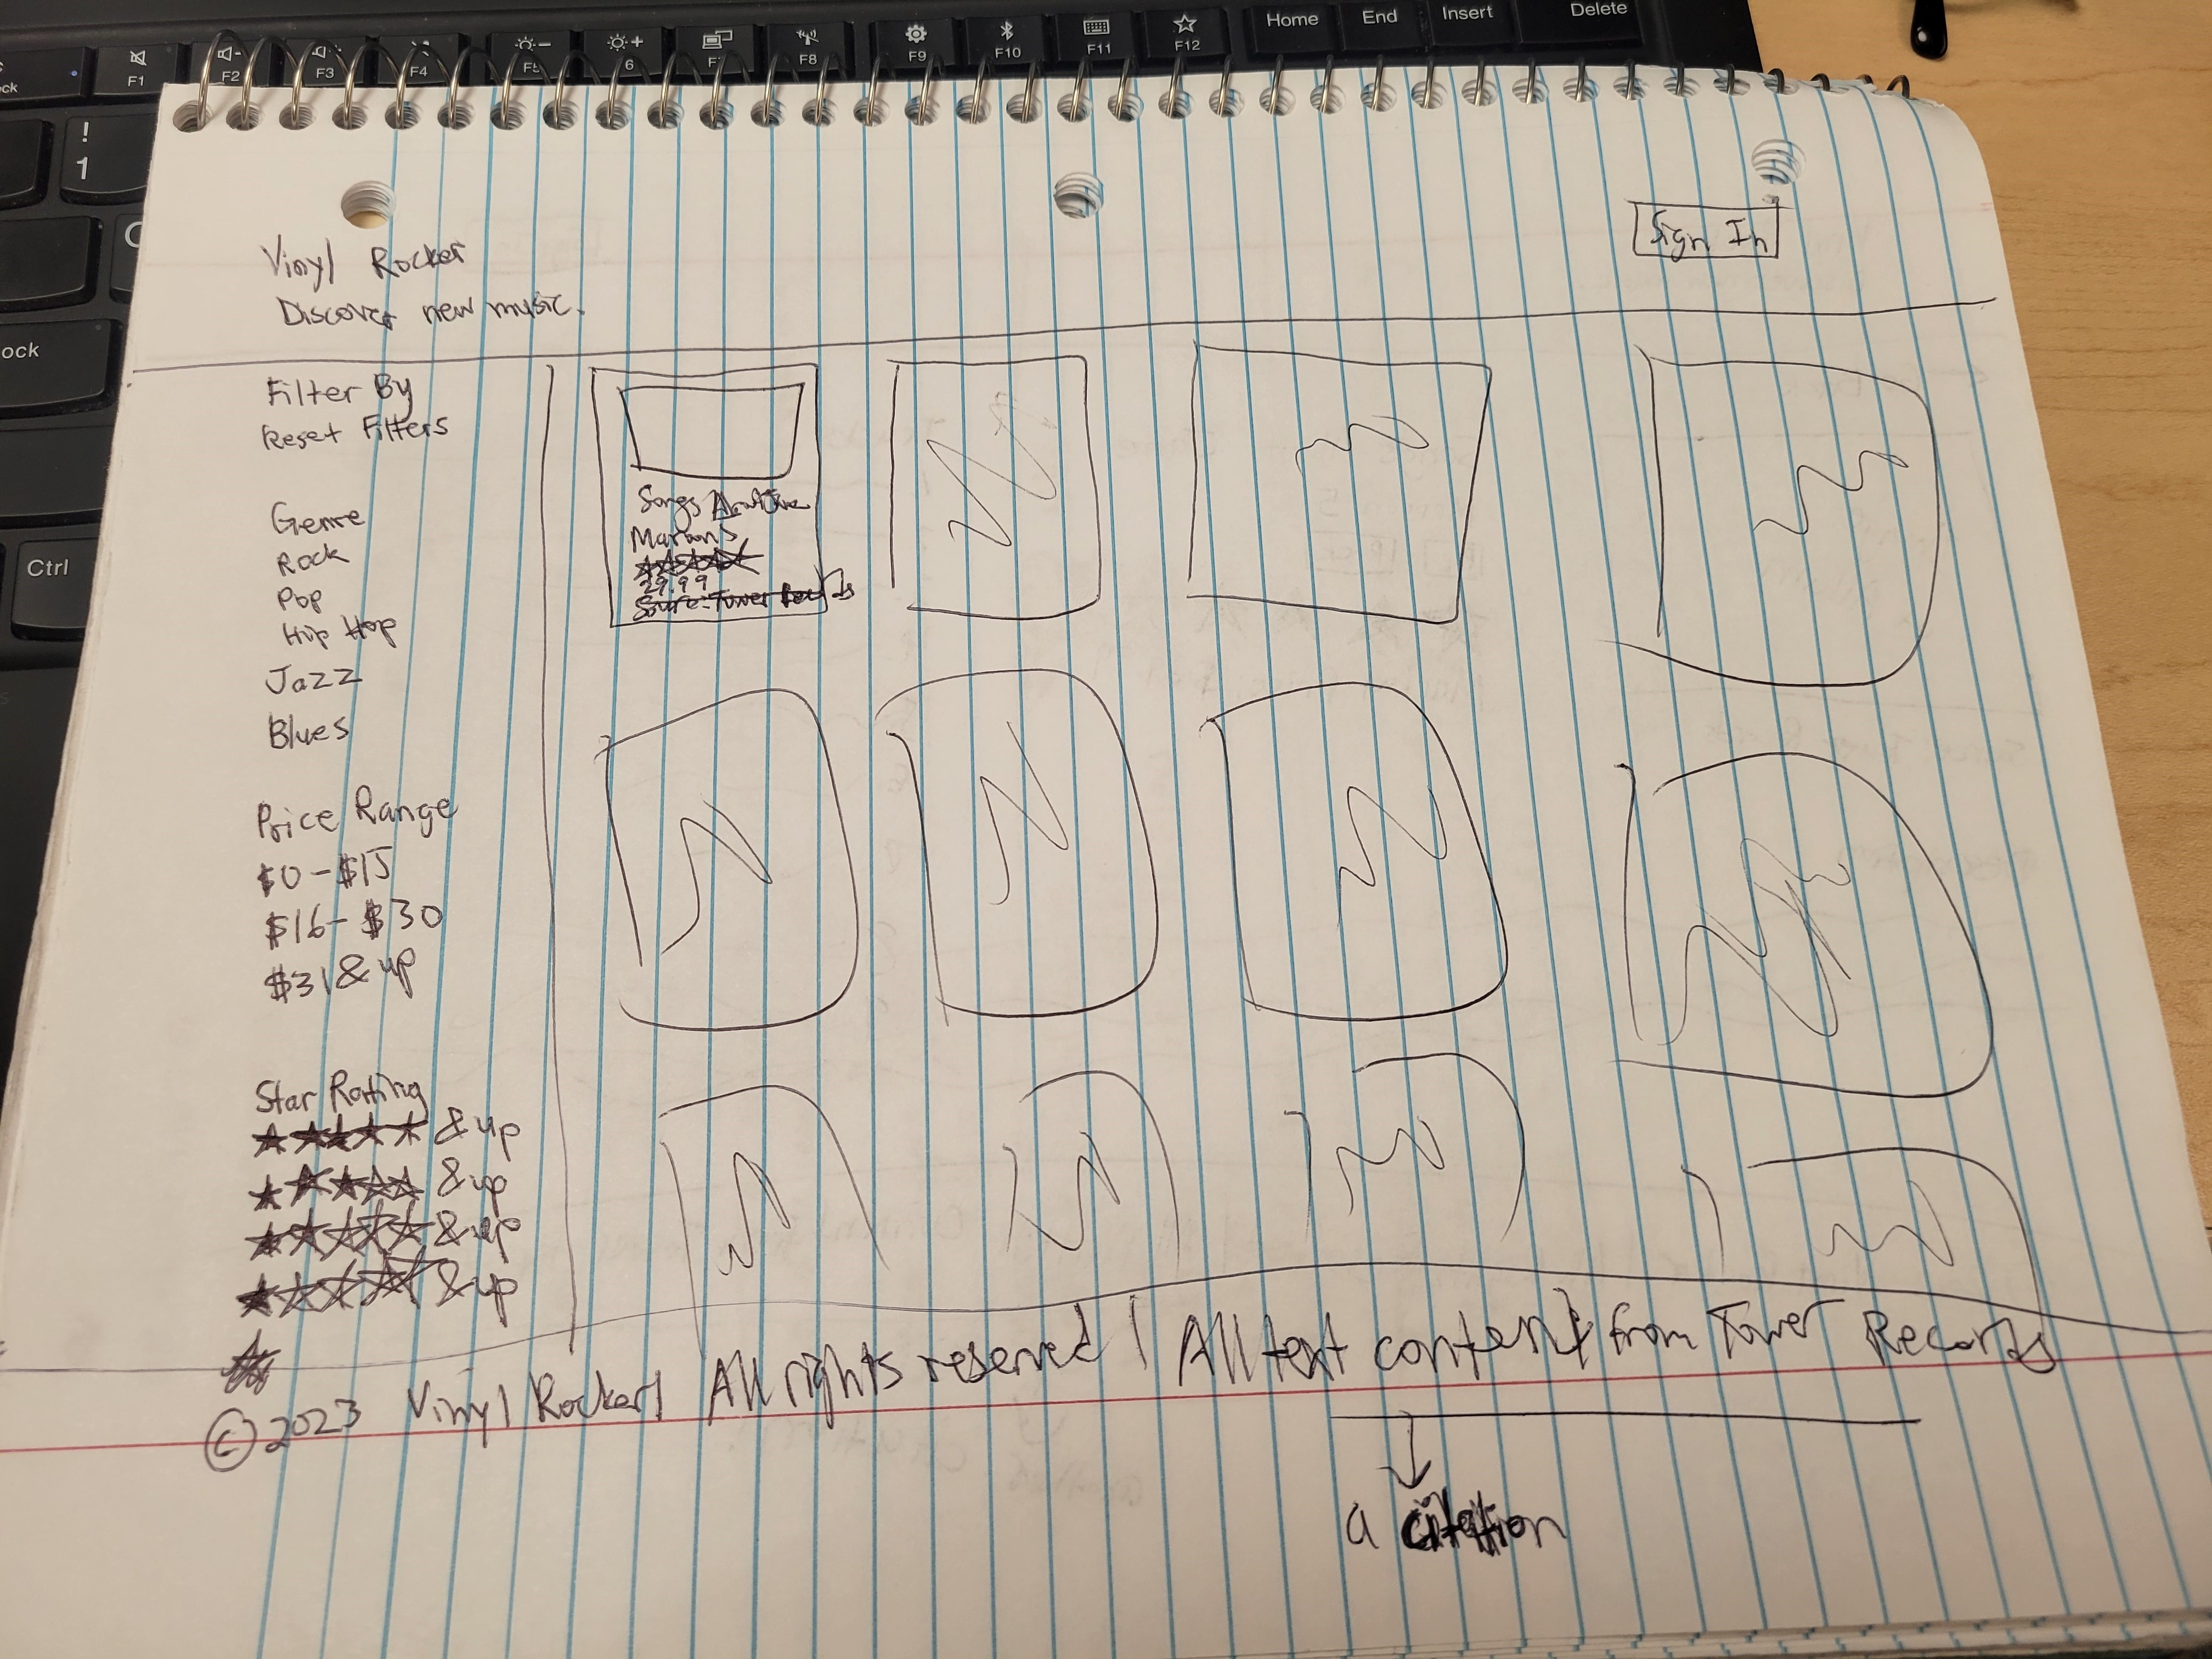 F1
F2
F3
F4
F8
F9
F10
F11
F12
Home
End
Insert
Delete
!
1
Ctrl
Sign In
Vinyl Rocker
Discover new music.
Filter By
Reset Filters
Genre
Rock
Pop
Hip Hop
Jazz
Blues
Price Range
$0-$15
$16-$30
$31 & up
Star Rating
★★★★★ & up
★★★★★ & up
★★★★★ & up
★★★★★ & up
Songs About Jane
Maroon 5
★★★★★
29.99
Source: Tower Records
© 2023 Vinyl Rocker | All rights reserved | All text content from Tower Records
a citation